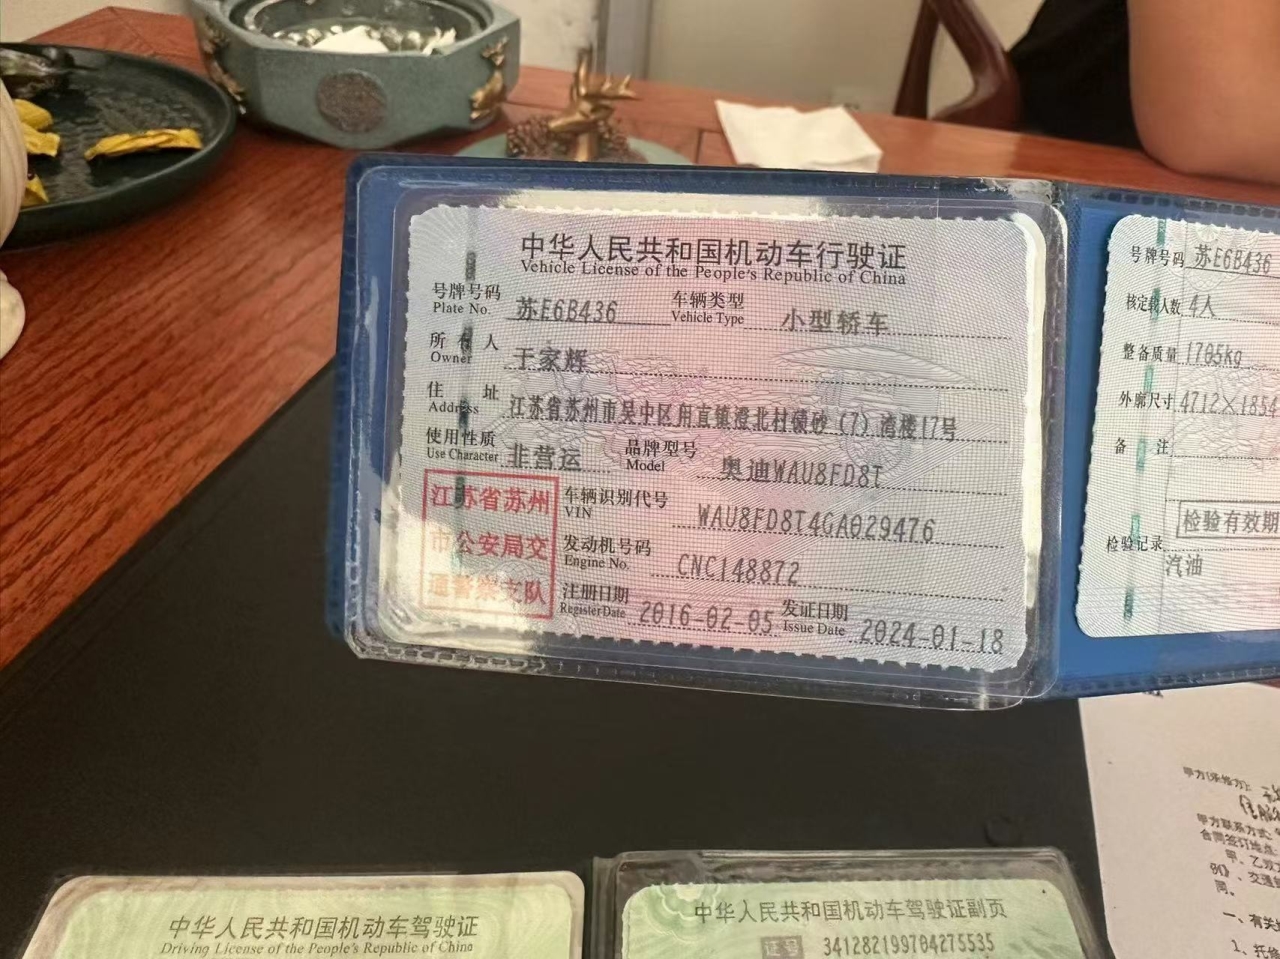 中华人民共和国机动车行驶证
Vehicle License of the People's Republic of China
号牌号码 苏E6B436 车辆类型 小型轿车
Plate No. Vehicle Type
所有人 于家辉
Owner
住址 江苏省苏州市吴中区甪直镇澄北村碛砂（7）湾楼17号
Address
使用性质 非营运 品牌型号 奥迪WAU8FD8T
Use Character Model
江苏省苏州
市公安局交
通警察支队
车辆识别代号 WAU8FD8T4GA029476
VIN
发动机号码 CNC148872
Engine No.
注册日期 2016-02-05 发证日期 2024-01-18
Register Date Issue Date
号牌号码 苏E6B436
核定载人数 4人
整备质量 1705kg
外廓尺寸 4712×1854
备注
检验有效期
检验记录
汽油
中华人民共和国机动车驾驶证
Driving License of the People's Republic of China
中华人民共和国机动车驾驶证副页
证号 341282199704275535
甲方联系方式:
合同签订地点:
甲、乙双
例》、交通
同。
一、有关
1、托修